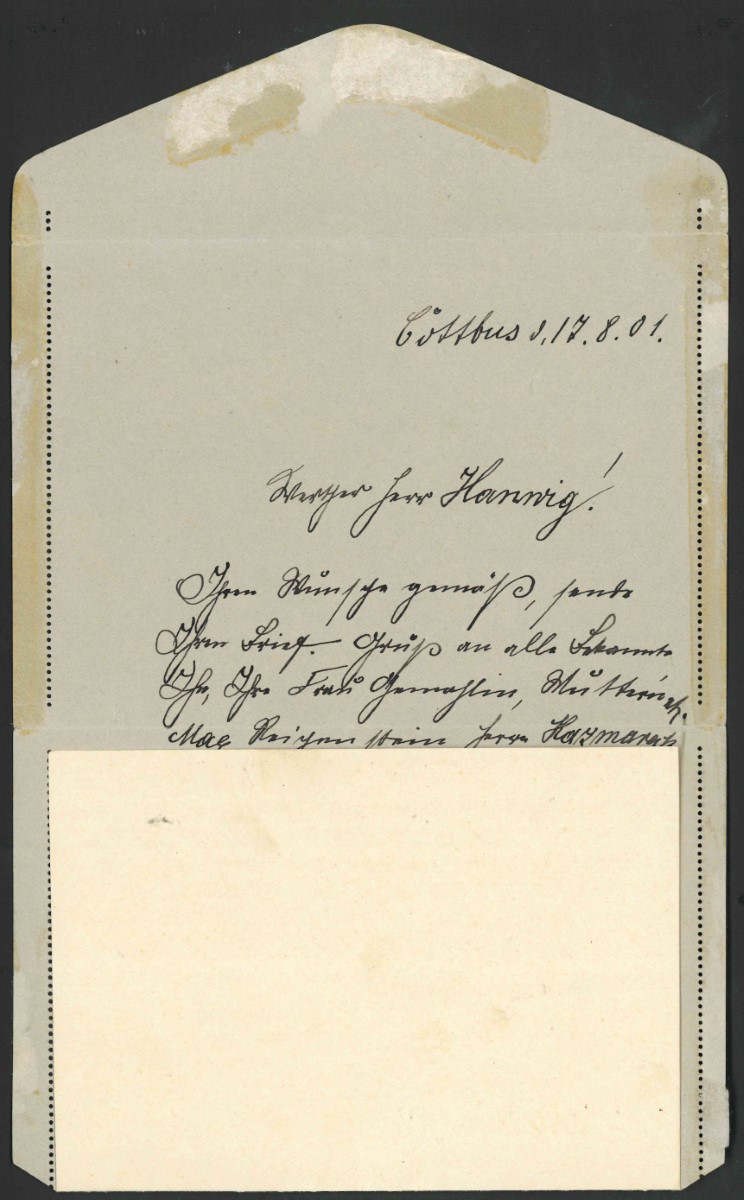 Cottbus d. 17. 8. 01.
Werther Herr Hanwig!
Ihrem Wunsche gemäß, sende
Ihren Brief. Gruß an alle Bekannte
Ihre Frau Gemahlin, Mutter
Max Reichenstein Herrn